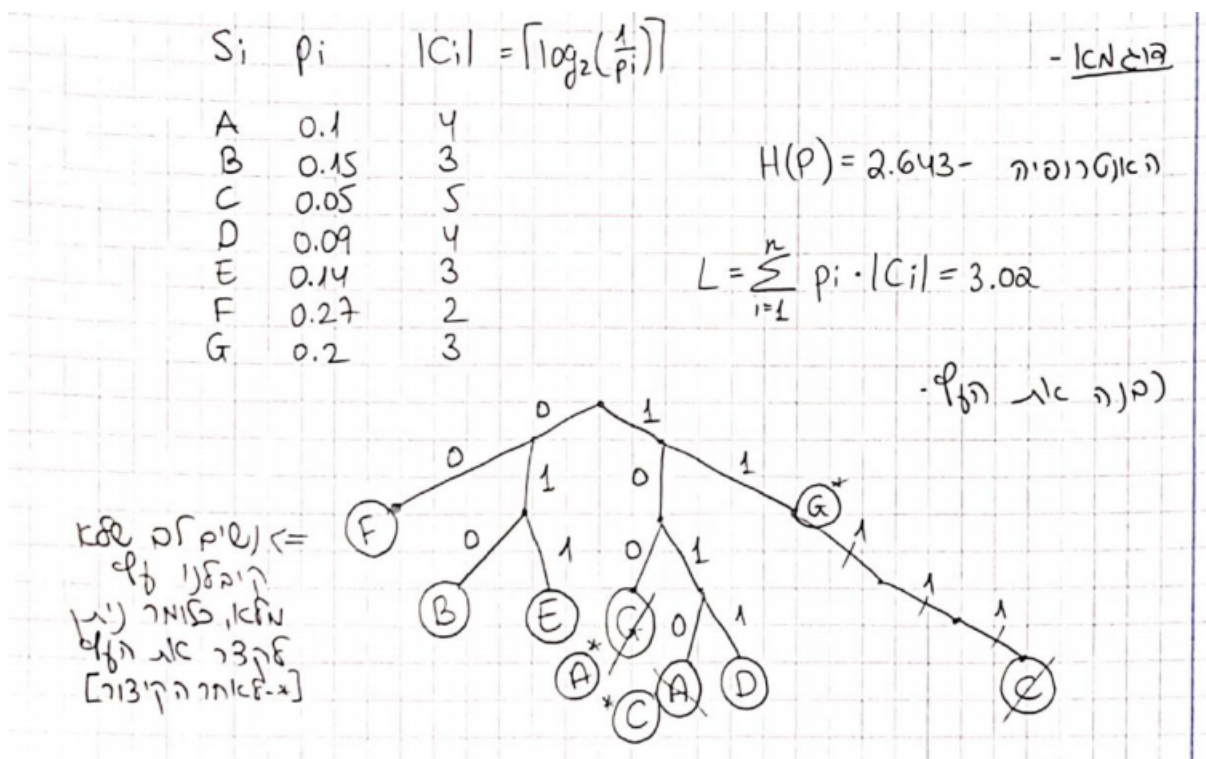 Si pi |Ci| = ⌈log₂(1/pi)⌉
דוגמא -
A 0.1 4
B 0.15 3
C 0.05 5
D 0.09 4
E 0.14 3
F 0.27 2
G 0.2 3
האנטרופיה - H(P) = 2.643
L = Σ_{i=1}^{n} pi · |Ci| = 3.02
נבנה את העץ -
0 1
0 1 0 1
F G*
0 1 0 1 1
B E G 1
A* 0 1 1
C* A D C
=> נשים לב שלא
קיבלנו עץ
מלא, כלומר ניתן
לקצר את העץ
[*-לאחר הקיצור]